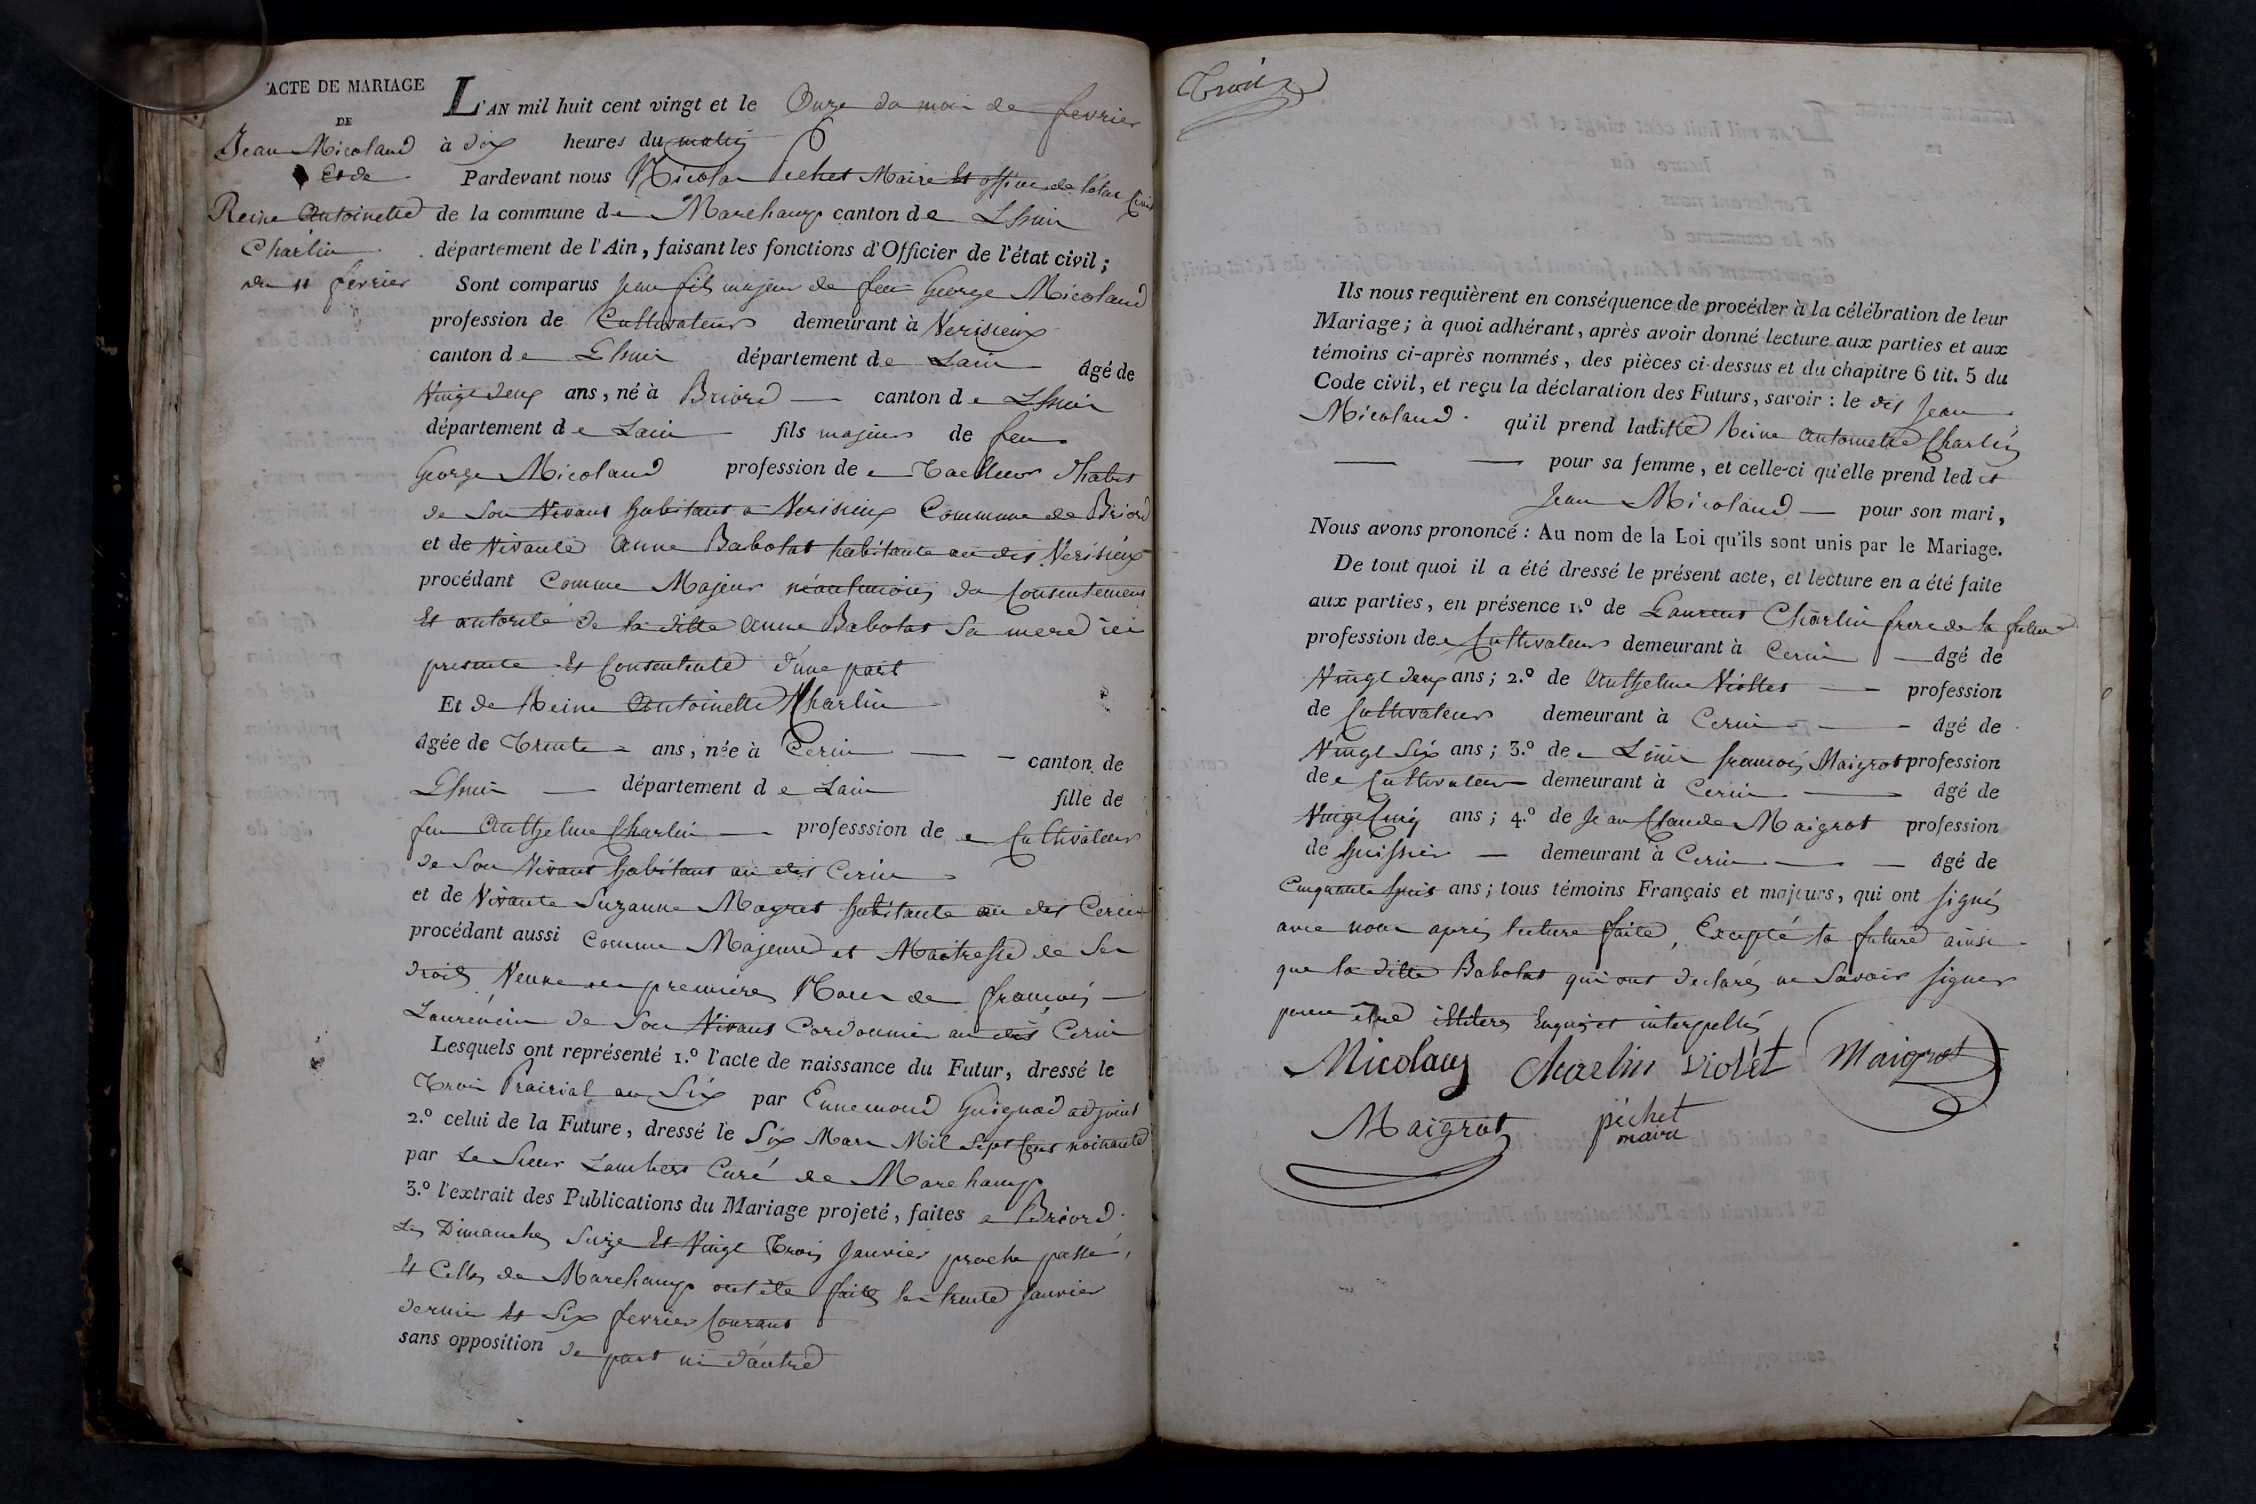 ACTE DE MARIAGE
DE
Jean Nicoland
Et de
Reine Antoinette
Charlin
du 11 fevrier
L'AN mil huit cent vingt et le Onze du mois de fevrier
à dix heures du matin
Pardevant nous Nicolas Pechet Maire Et officier de l'état Civil
de la commune de Marchamp canton de Lhuis
département de l'Ain, faisant les fonctions d'Officier de l'état civil;
Sont comparus Jean fils majeur de feu George Nicoland
profession de Cultivateur demeurant à Verisieux
canton de Lhuis département de Lain âgé de
Vingt deux ans, né à Briord canton de Lhuis
département de Lain fils majeur de feu
George Nicoland profession de Tailleur d'habit
de Son Vivant habitant a Verisieux Commune de Briord
et de Vivante Anne Babolat habitante au dit Verisieux
procédant Comme Majeur néantmoins du Consentement
Et autorité de la ditte Anne Babolat Sa mere ici
presente Et Consentente d'une part
Et de Reine Antoinette Charlin
âgée de Trente ans, née à Cerin canton de
Lhuis département de Lain fille de
feu Anthelme Charlin professsion de Cultivateur
de Son Vivant habitant au dit Cerin
et de Vivante Suzanne Magret habitante au dit Cerin
procédant aussi Comme Majeure et Maitresse de Ses
droits Veuve en premières Noces de francois
Laurencin de Son Vivant Cordonnier au dit Cerin
Lesquels ont représenté 1.º l'acte de naissance du Futur, dressé le
Trois Prairial an Six par Ennemond Guignard adjoint
2.º celui de la Future, dressé le Six Mars Mil Sept Cent nonante
par Le Sieur Lambert Curé de Marchamp
3.º l'extrait des Publications du Mariage projeté, faites a Briord
Les Dimanches Seize Et Vingt Trois Janvier proche passé,
Et Celles de Marchamp ont été faites les trente Janvier
dernier Et Six fevrier Courant
sans opposition de part ni d'autre
Trois
Ils nous requièrent en conséquence de procéder à la célébration de leur
Mariage; à quoi adhérant, après avoir donné lecture aux parties et aux
témoins ci-après nommés, des pièces ci-dessus et du chapitre 6 tit. 5 du
Code civil, et reçu la déclaration des Futurs, savoir: le dit Jean
Nicoland qu'il prend laditte Reine Antoinette Charlin
pour sa femme, et celle-ci qu'elle prend led it
Jean Nicoland pour son mari,
Nous avons prononcé: Au nom de la Loi qu'ils sont unis par le Mariage.
De tout quoi il a été dressé le présent acte, et lecture en a été faite
aux parties, en présence 1.º de Laurent Charlin frere de la future
profession de Cultivateur demeurant à Cerin âgé de
Vingt deux ans; 2.º de Anthelme Viollet profession
de Cultivateur demeurant à Cerin âgé de
Vingt Six ans; 3.º de Louis francois Maigrot profession
de Cultivateur demeurant à Cerin âgé de
Vingt Cinq ans; 4.º de Jean Claude Maigrot profession
de huissier demeurant à Cerin âgé de
Cinquante huit ans; tous témoins Français et majeurs, qui ont signés
avec nous après lecture faite, Excepté la future ainsi
que la ditte Babolat qui ont declarés ne Savoir Signer
pour être illiteres Enquis et interpellés
Nicolaud Charlin violet Maigrot
Maigrot péchet
maire